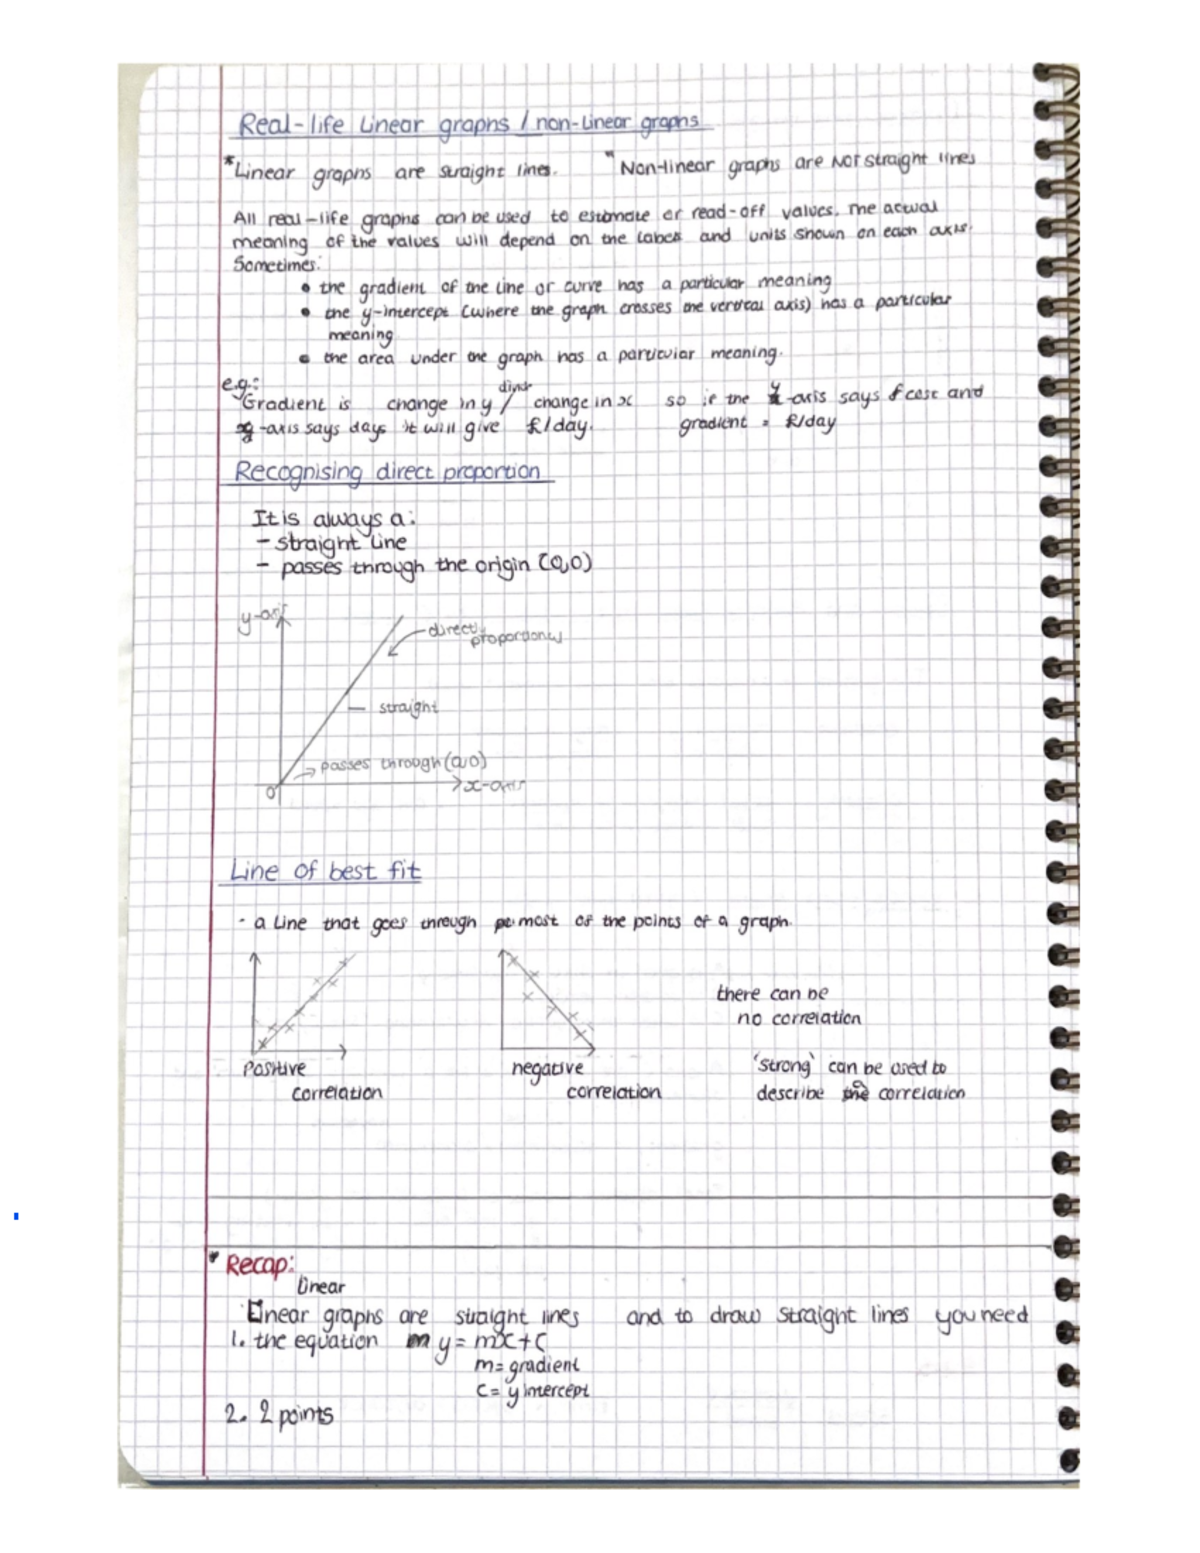 Real-life Linear graphs / non-Linear graphs
*Linear graphs are straight lines. *Non-linear graphs are NOT straight lines
All real-life graphs can be used to estimate or read-off values. The actual
meaning of the values will depend on the labels and units shown on each axis.
Sometimes:
• the gradient of the line or curve has a particular meaning
• the y-intercept (where the graph crosses the vertical axis) has a particular
meaning
• the area under the graph has a particular meaning.
e.g.:
Gradient is change in y / change in x so if the y-axis says £ cost and
x-axis says days it will give £/day. gradient = £/day
Recognising direct proportion
It is always a:
- straight line
- passes through the origin (0,0)
y-axis
directly
proportional
straight
passes through (0,0)
0
x-axis
Line of best fit
- a Line that goes through most of the points of a graph.
there can be
no correlation
Positive
correlation
negative
correlation
'strong' can be used to
describe a correlation
* Recap:
Linear
Linear graphs are straight lines and to draw straight lines you need
1. the equation y = mx+c
m= gradient
c= y intercept
2. 2 points